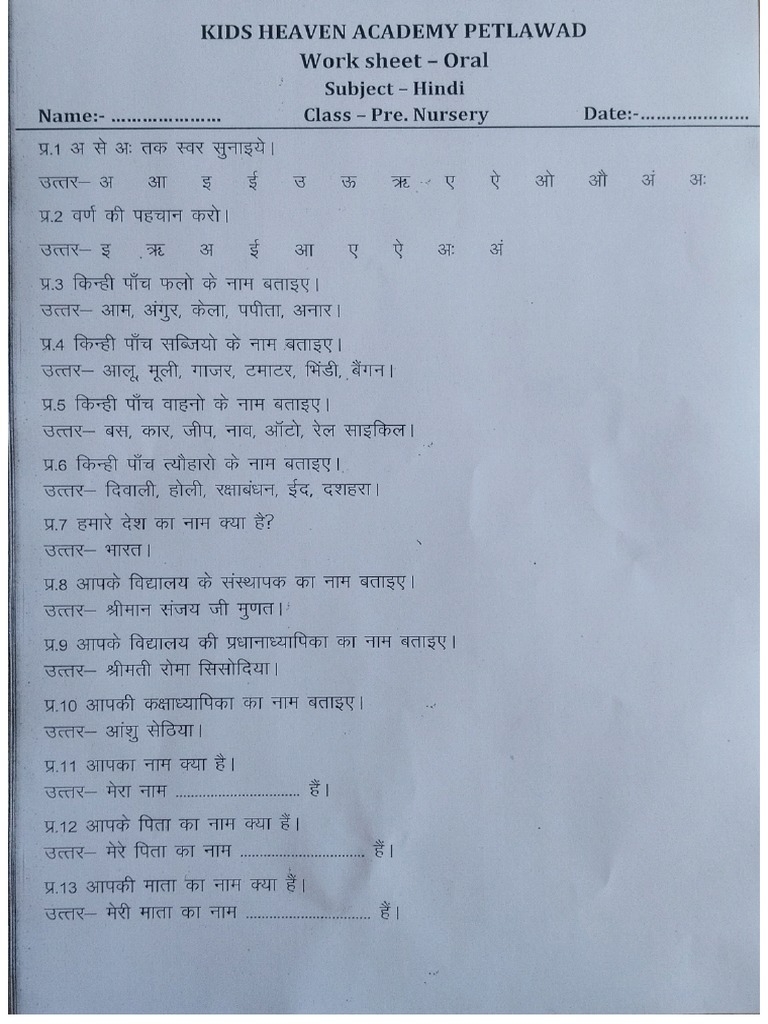 KIDS HEAVEN ACADEMY PETLAWAD
Work sheet – Oral
Subject – Hindi
Name:- ..................... Class – Pre. Nursery Date:-.....................
प्र.1 अ से अः तक स्वर सुनाइये।
उत्तर– अ आ इ ई उ ऊ ऋ ए ऐ ओ औ अं अः
प्र.2 वर्ण की पहचान करो।
उत्तर– इ ऋ अ ई आ ए ऐ अः अं
प्र.3 किन्ही पाँच फलो के नाम बताइए।
उत्तर– आम, अंगुर, केला, पपीता, अनार।
प्र.4 किन्ही पाँच सब्जियो के नाम बताइए।
उत्तर– आलू, मूली, गाजर, टमाटर, भिंडी, बैंगन।
प्र.5 किन्ही पाँच वाहनो के नाम बताइए।
उत्तर– बस, कार, जीप, नाव, ऑटो, रेल साइकिल।
प्र.6 किन्ही पाँच त्यौहारो के नाम बताइए।
उत्तर– दिवाली, होली, रक्षाबंधन, ईद, दशहरा।
प्र.7 हमारे देश का नाम क्या है?
उत्तर– भारत।
प्र.8 आपके विद्यालय के संस्थापक का नाम बताइए।
उत्तर– श्रीमान संजय जी मुणत।
प्र.9 आपके विद्यालय की प्रधानाध्यापिका का नाम बताइए।
उत्तर– श्रीमती रोमा सिसोदिया।
प्र.10 आपकी कक्षाध्यापिका का नाम बताइए।
उत्तर– आंशु सेठिया।
प्र.11 आपका नाम क्या है।
उत्तर– मेरा नाम ................................ हैं।
प्र.12 आपके पिता का नाम क्या हैं।
उत्तर– मेरे पिता का नाम ................................ हैं।
प्र.13 आपकी माता का नाम क्या हैं।
उत्तर– मेरी माता का नाम ................................ हैं।